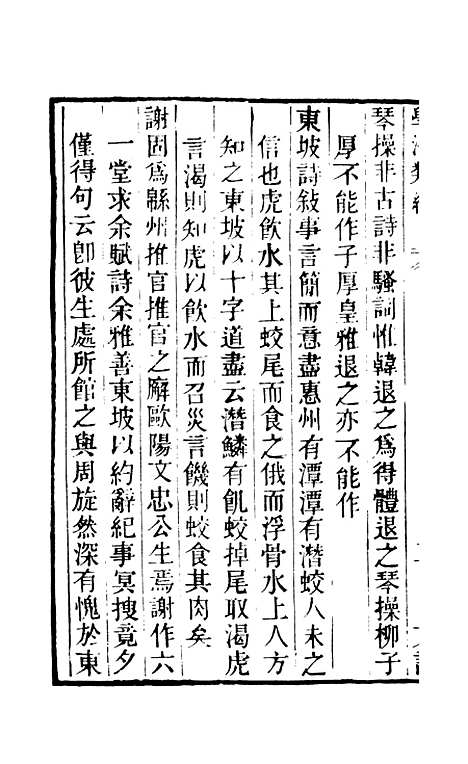 琴操非古詩非騷詞惟韓退之爲得體退之琴操柳子
厚不能作子厚皇雅退之亦不能作
東坡詩敍事言簡而意盡惠州有潭潭有潛蛟人未之
信也虎飲水其上蛟尾而食之俄而浮骨水上人方
知之東坡以十字道盡云潛鱗有飢蛟掉尾取渴虎
言渴則知虎以飲水而召災言饑則蛟食其肉矣
謝固爲緜州推官推官之廨歐陽文忠公生焉謝作六
一堂求余賦詩余雅善東坡以約辭紀事冥搜竟夕
僅得句云卽彼生處所館之與周旋然深有愧於東